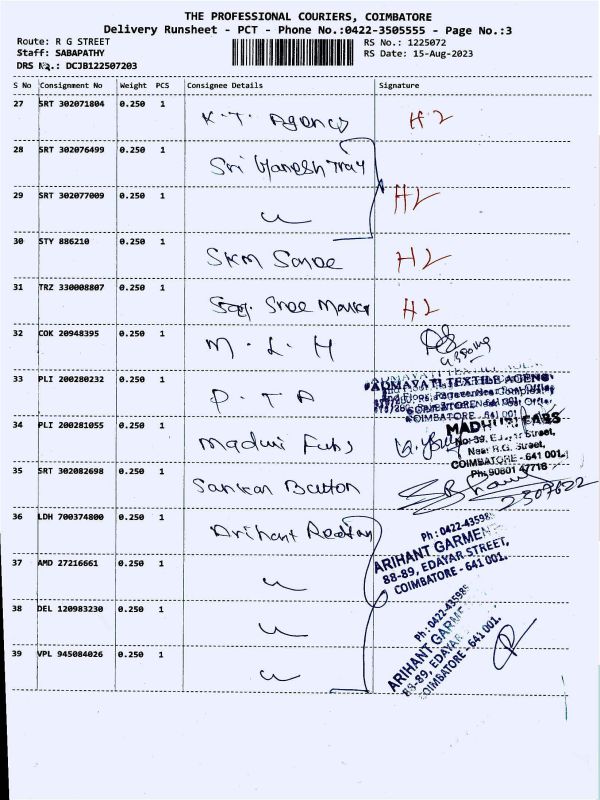 THE PROFESSIONAL COURIERS, COIMBATORE
Delivery Runsheet - PCT - Phone No.:0422-3505555 - Page No.:3
Route: R G STREET
Staff: SABAPATHY
DRS No.: DCJB122507203
RS No.: 1225072
RS Date: 15-Aug-2023
S No Consignment No Weight PCS Consignee Details Signature
27 SRT 302071804 0.250 1 K.T. Agency H2
28 SRT 302076499 0.250 1 Sri Ganesh Tray
29 SRT 302077009 0.250 1 H2
30 STY 886210 0.250 1 SKM Saree H2
31 TRZ 330008807 0.250 1 Sree H2
32 COK 20948395 0.250 1 M.L.H
33 PLI 200280232 0.250 1 P.T.A
PADMAVATI TEXTILE AGENC
COIMBATORE - 641 001
34 PLI 200281055 0.250 1 Maduri Fabs
MADHURI FABS
No: 39, Edayar Street,
Near R.G. Street,
COIMBATORE - 641 001.
Ph: 90801 47718
35 SRT 302082698 0.250 1 Sankar Button
2307622
36 LDH 700374800 0.250 1 Arihant
Ph : 0422-43598
ARIHANT GARMEN
88-89, EDAYAR STREET,
COIMBATORE - 641 001.
37 AMD 27216661 0.250 1
38 DEL 120983230 0.250 1
Ph : 0422-43598
ARIHANT GARME
88-89, EDAYAR
COIMBATORE - 641 001.
39 VPL 945084026 0.250 1